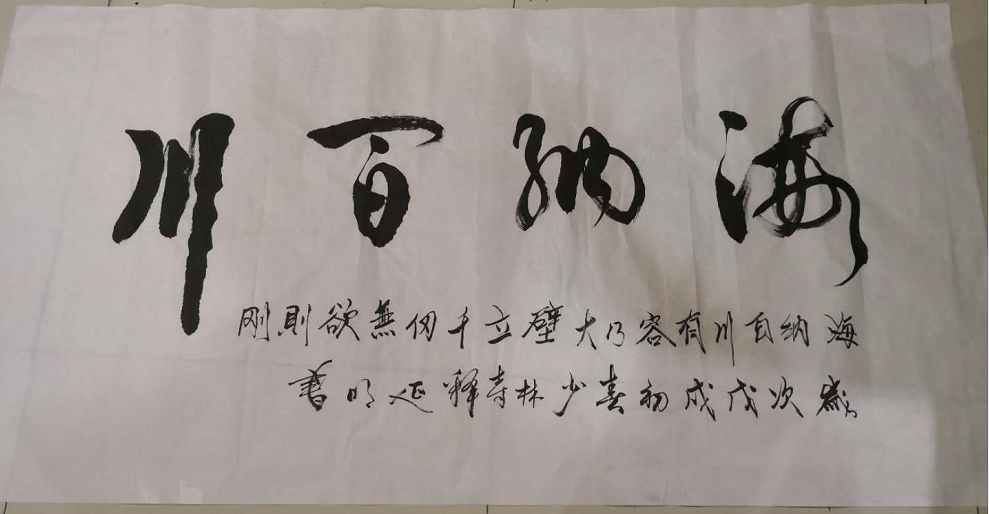 海纳百川
海纳百川有容乃大壁立千仞無欲則刚
歲次戊戌初春少林寺释延明書